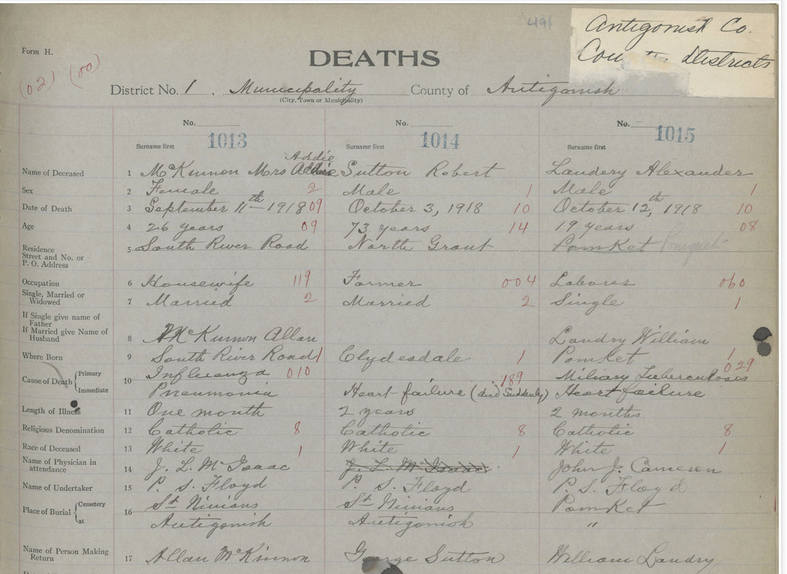 491
Antigonish Co.
districts
Form H.
DEATHS
(02) (00)
District No. 1. Municipality County of Antigonish
(City, Town or Municipality)
No. No. No.
1013 1014 1015
Surname first Surname first Surname first
Addie
Name of Deceased 1 McKinnon Mrs Sutton Robert Landry Alexander
Sex 2 Female 2 Male 1 Male 1
Date of Death 3 September 11th 1918 09 October 3, 1918 10 October 12th, 1918 10
Age 4 26 years 09 73 years 14 19 years 08
Residence
Street and No. or
P. O. Address
5 South River Road North Grant Pomket
Occupation 6 Housewife 119 Farmer 004 Laborer 060
Single, Married or
Widowed
7 Married 2 Married 2 Single 1
If Single give name of
Father
If Married give Name of
Husband
8 McKinnon Allan Landry William
Where Born 9 South River Road 1 Clydesdale 1 Pomket 1
Cause of Death Primary Immediate 10 Influenza 010 189 Miliary Tuberculosis 029
Pneumonia Heart failure (died Suddenly) Heart failure
Length of Illness 11 One month 2 years 2 months
Religious Denomination 12 Catholic 8 Catholic 8 Catholic 8
Race of Deceased 13 White 1 White 1 White 1
Name of Physician in
attendance
14 J. L. McIsaac J. L. McIsaac John J. Cameron
Name of Undertaker 15 P. S. Floyd P. S. Floyd P. S. Floyd
Place of Burial Cemetery at 16 St Ninians St Ninians Pomket
Antigonish Antigonish "
Name of Person Making
Return
17 Allan McKinnon George Sutton William Landry